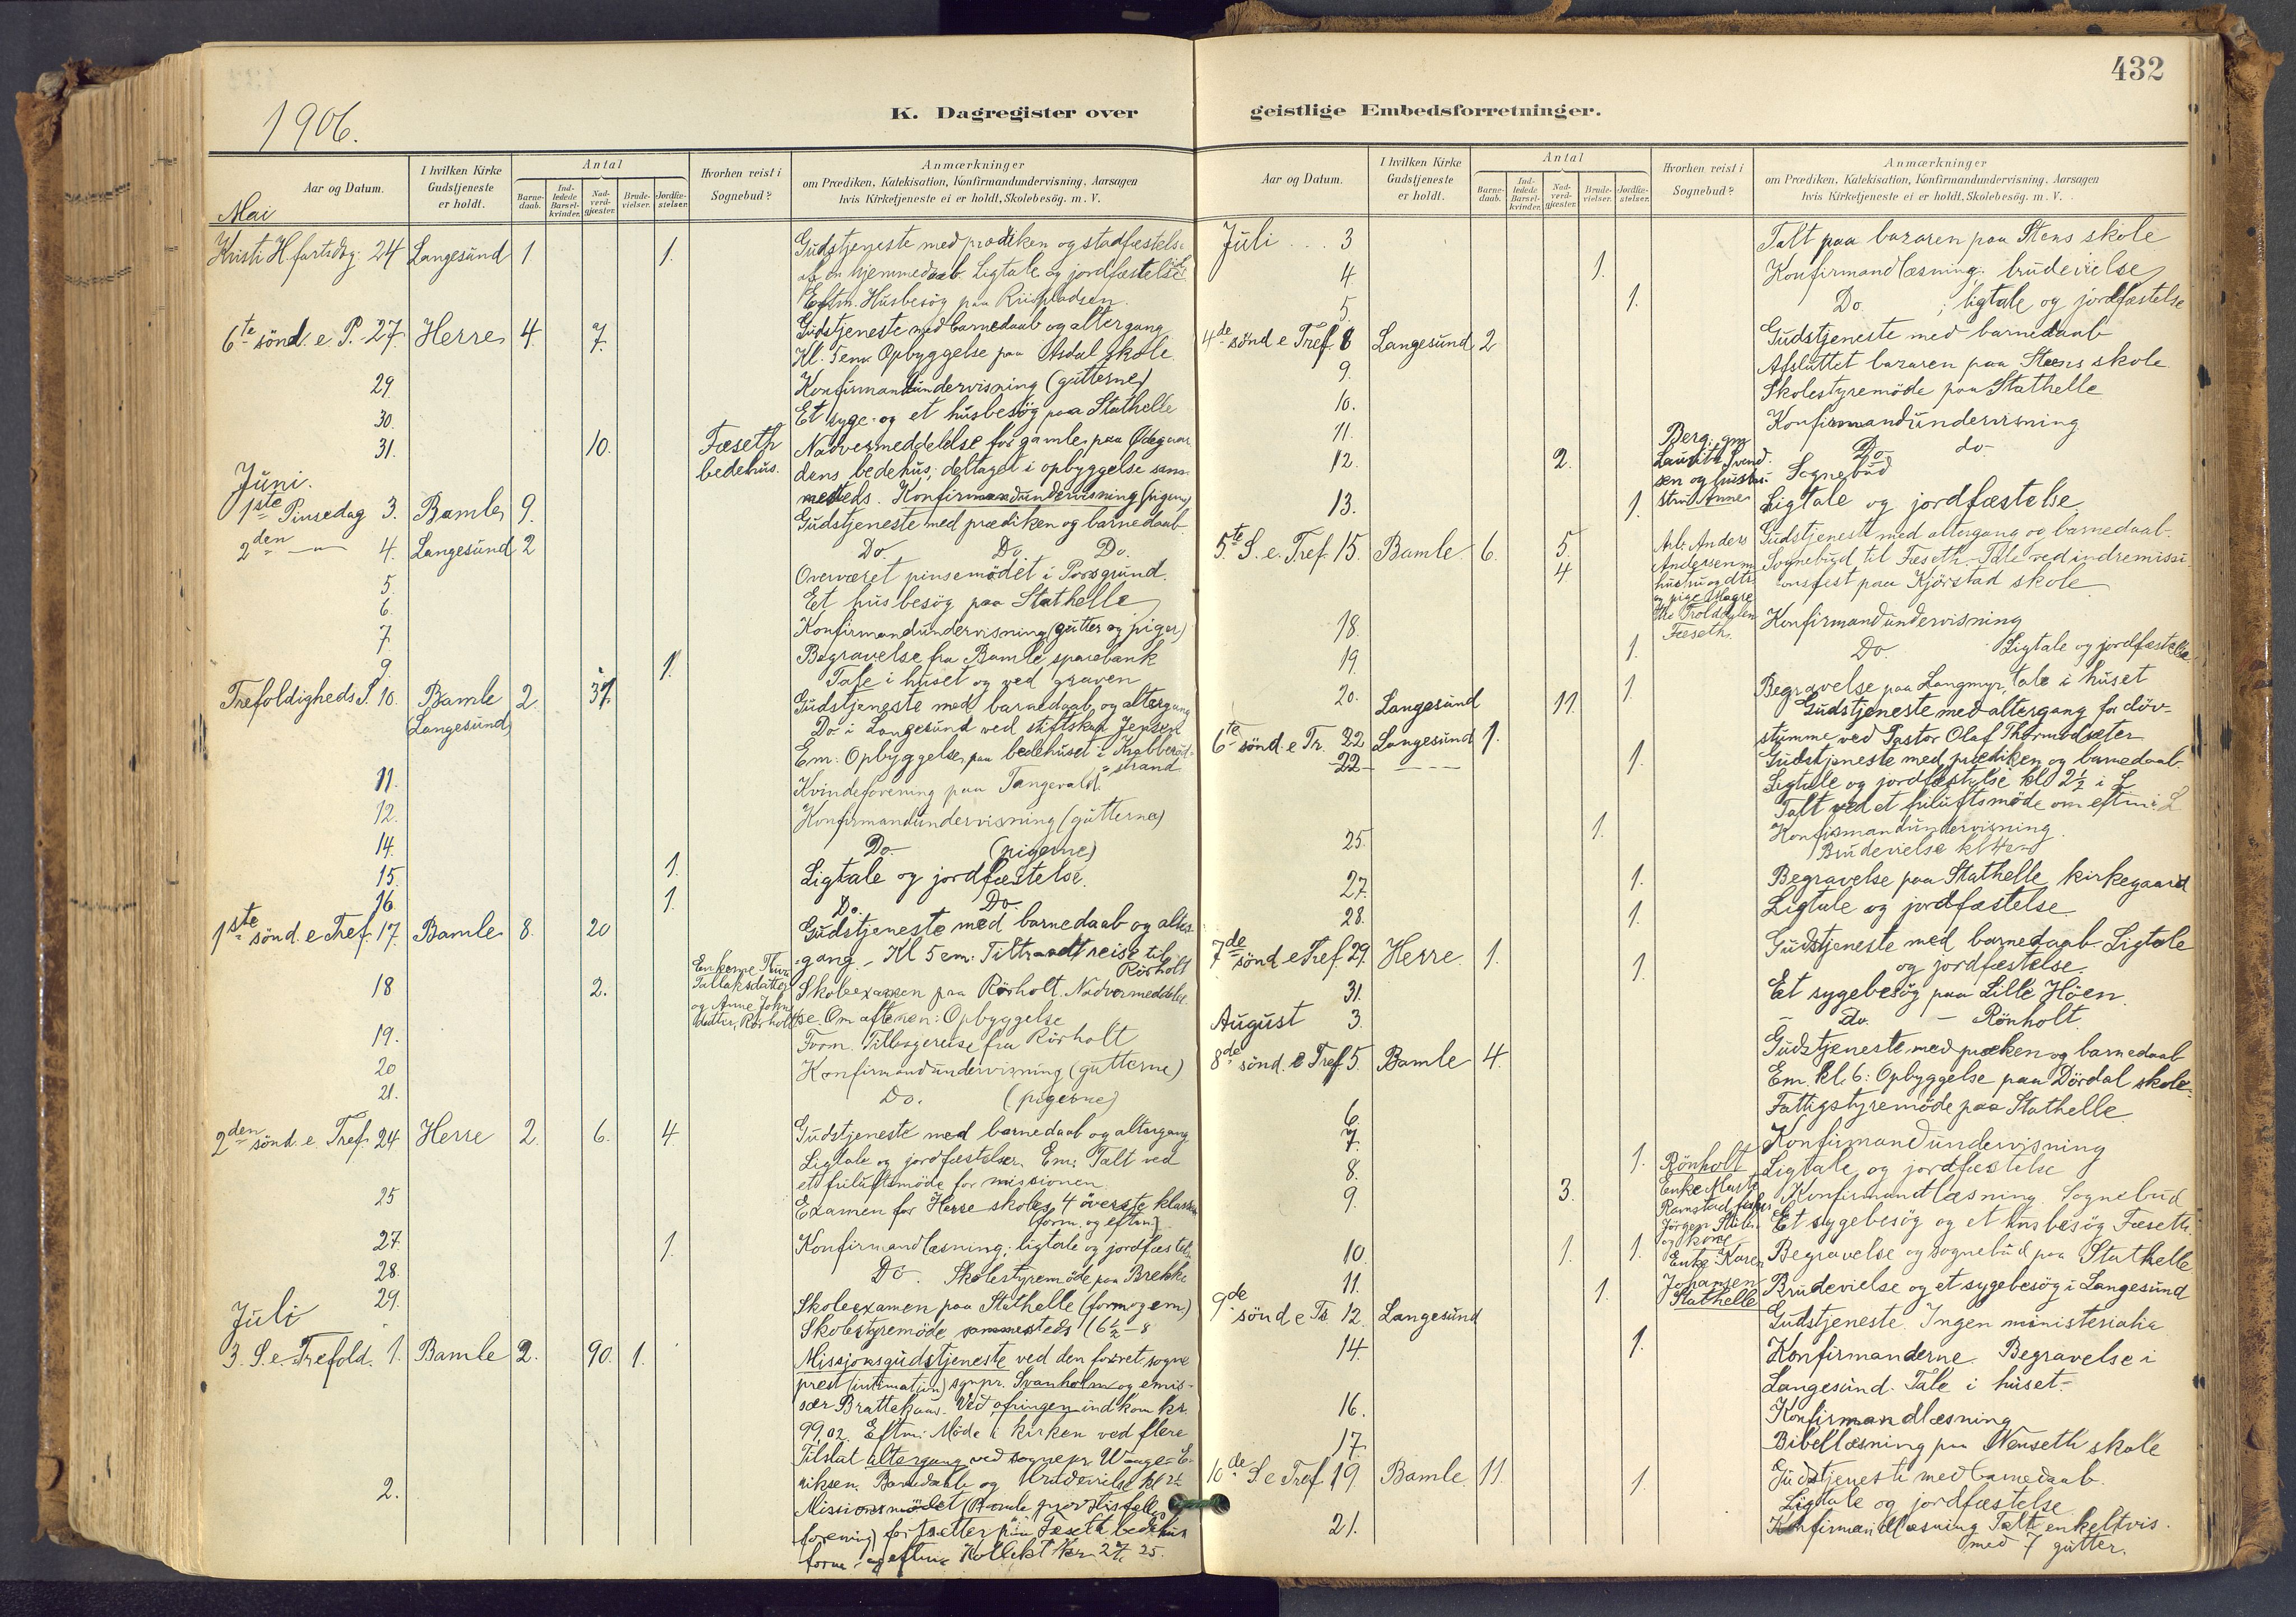 1906.
K. Dagregister over
Aar og Datum.
I hvilken Kirke Gudstjeneste er holdt.
Antal
Barne-daab.
Ind-ledede Barsel-kvinder.
Nad-verd-gjæster.
Brude-vielser.
Jordfæ-stelser.
Hvorhen reist i Sognebud?
Anmærkninger
om Prædiken, Katekisation, Konfirmandundervisning, Aarsagen
hvis Kirketjeneste ei er holdt, Skolebesög. m. V.
Mai
Kristi H. fartsdag. 24 Langesund 1 1. Gudstjeneste med prædiken og stadfæstelse
af en hjemmedaab. Ligtale og jordfæstelse
Eftm. Husbesög paa
6te sönd. e. P. 27. Herre 4. 7. Gudstjeneste med barnedaab og altergang
Kl. 5 em. Opbyggelse paa Asdal skole
29. Konfirmandundervisning (gutterne)
30. Et syge- og et husbesög paa Stathelle
31. 10. Fæseth bedehus. Nadvermeddelelse for gamle paa Ødegaar
dens bedehus; deltaget i opbyggelse sam-
mesteds. Konfirmandundervisning (pigerne)
Juni.
1ste Pinsedag 3. Bamle 9. Gudstjeneste med prædiken og barnedaab
2den — 4. Langesund 2 Do. Do. Do.
5. Overværet pinsemödet i Porsgrund.
6. Et husbesög paa Stathelle
7. Konfirmandundervisning (gutter og piger)
9. 1. Begravelse fra Bamle sparebank
Tale i huset og ved graven
Trefoldigheds S. 10. Bamle 2. 37. Gudstjeneste med barnedaab og altergang
(Langesund) Do i Langesund ved stiftskap. Jensen
Em. Opbyggelse paa bedehuset i Krabberöd-
strand
11. Kvindeforening paa Tangevald.
12. Konfirmandundervisning (gutterne)
14. Do. (pigerne)
15. 1. Ligtale og jordfæstelse.
16. 1. Do. Do.
1ste sönd. e Tref. 17. Bamle 8. 20 Gudstjeneste med barnedaab og alter-
gang. - Kl 5 em. Tiltraadt reise til
Rörholt
18 2. Enkerne Thura Tallaksdatter og Anne Johns datter, Rörholt Skoleexamen paa Rörholt. Nadvermeddelel-
se. Om aftenen: Opbyggelse
19. Form. Tilbagereise fra Rörholt
20 Konfirmandundervisning (gutterne)
21. Do. (pigerne)
2den sönd. e. Tref. 24 Herre 2. 6. 4. Gudstjeneste med barnedaab og altergang
Ligtale og jordfæstelser. Em. Talt ved
et friluftsmöde for missionen
25 Examen for Herre skoles 4 överste klasser
(form. og eftm.)
27. 1. Konfirmandlæsning; ligtale og jordfæstel.
28. Do. Skolestyremöde paa Brekke
29. Skoleexamen paa Stathelle (form og em)
Skolestyremöde sammesteds (6½ - 8
Juli
3. S. e. Trefold. 1. Bamle 2. 90. 1. Missionsgudstjeneste ved den forret. sogne
prest (intimation) sgnpr. Svanholm og emis-
sær Brattekaas. Ved ofringen indkom kr.
99,02. Eftm. Möde i kirken ved flere
Tilslut altergang ved sognepr. Wange E-
riksen. Barnedaab og brudevielse kl 2½
2. Missionsmödet (Bamle provstis fælles-
forening) fortsætter paa Fæseth bedehus
form. og eftm. Kollekt Kr. 27, 25.
432
geistlige Embedsforretninger.
Aar og Datum.
I hvilken Kirke Gudstjeneste er holdt.
Antal
Barne-daab.
Ind-ledede Barsel-kvinder.
Nad-verd-gjæster.
Brude-vielser.
Jordfæ-stelser.
Hvorhen reist i Sognebud?
Anmærkninger
om Prædiken, Katekisation, Konfirmandundervisning, Aarsagen
hvis Kirketjeneste ei er holdt, Skolebesög. m. V.
Juli . . . 3 Talt paa basaren paa Stens skole
4 1. Konfirmandlæsning. brudevielse
5. 1. Do. ; ligtale og jordfæstelse
4de sönd e Tref. 8 Langesund 2 Gudstjeneste med barnedaab
9. Afsluttet basaren paa Steens skole
10. Skolestyremöde paa Stathelle
11. Konfirmandundervisning
12. 2. Berg: gm Lauritz Svend sen og hustru Do- do-
Sognebud
13. 1. Ligtale og jordfæstelse.
5te S. e. Tref. 15. Bamle 6. 5. Arb. Anders Andersen m. hustru og dtr. Gudstjeneste med altergang og barnedaab.
4 Sognebud til Fæseth. Tale ved indremissi-
onsfest paa Kjörstad skole
18. Fæseth. Konfirmandundervisning
19. 1. Do. Ligtale og jordfæstelse
20. 1. Begravelse paa Langmyr, tale i huset
Langesund 11. Gudstjeneste med altergang for döv-
stumme ved Pastor Olaf Thormodsæter
6te sönd. e Tr. 22 Langesund 1. Gudstjeneste med prædiken og barnedaab.
22 - - - - 1. Ligtale og jordfæstelse kl 2½ i L
Talt ved et friluftsmöde om eftm i L
25. 1. Konfirmandundervisning.
Brudevielse kl 4
27. 1. Begravelse paa Stathelle kirkegaard
28. 1. Ligtale og jordfæstelse
7de sönd e Tref. 29. Herre 1. 1. Gudstjeneste med barnedaab. Ligtale
og jordfæstelse.
31. Et sygebesög paa Lille Höen.
August 3. - Do. - Rönholt.
8de sönd. e Tref. 5. Bamle 4. Gudstjeneste med præken og barnedaab
Em. kl. 6: Opbyggelse paa Dördal skole.
6 Fattigstyremöde paa Stathelle
7. Konfirmandundervisning
8. 1. Rönholt Ligtale og jordfæstelse
9. 3. Enke Marte Konfirmandlæsning. Sognebud
Et sygebesög og et husbesög Fæseth.
10. 1. 1. Enke Karen Johansen Stathelle Begravelse og sognebud paa Stathelle
11. 1. Brudevielse og et sygebesög i Langesund
9de sönd e Tr. 12. Langesund Gudstjeneste. Ingen ministerialia
14. 1. Konfirmanderne. Begravelse i
Langesund. Tale i huset.
16. Konfirmandlæsning
17. Bibellæsning paa Nenseth skole
10de S. e Tref. 19 Bamle 11. 1. Gudstjeneste med barnedaab.
Ligtale og jordfæstelse
21. Konfirmandlæsning Talt enkeltvis
med 7 gutter.